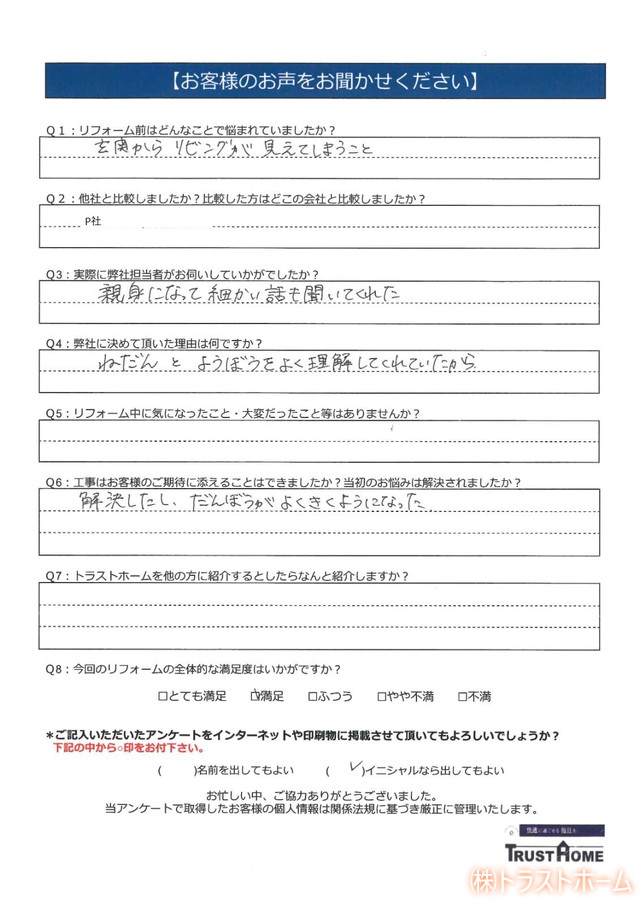 【お客様のお声をお聞かせください】
Q1：リフォーム前はどんなことで悩まれていましたか？
玄関から リビングが 見えてしまうこと
Q2：他社と比較しましたか？比較した方はどこの会社と比較しましたか？
P社
Q3：実際に弊社担当者がお伺いしていかがでしたか？
親身になって 細かい 話も 聞いてくれた
Q4：弊社に決めて頂いた理由は何ですか？
ねだん と ようぼうをよく 理解してくれていたから
Q5：リフォーム中に気になったこと・大変だったこと等はありませんか？
Q6：工事はお客様のご期待に添えることはできましたか？当初のお悩みは解決されましたか？
解決したし、だんぼうがよくきくようになった
Q7：トラストホームを他の方に紹介するとしたらなんと紹介しますか？
Q8：今回のリフォームの全体的な満足度はいかがですか？
□とても満足 ☑満足 □ふつう □やや不満 □不満
＊ご記入いただいたアンケートをインターネットや印刷物に掲載させて頂いてもよろしいでしょうか？
下記の中から○印をお付下さい。
( )名前を出してもよい ( ✓ )イニシャルなら出してもよい
お忙しい中、ご協力ありがとうございました。
当アンケートで取得したお客様の個人情報は関係法規に基づき厳正に管理いたします。
快適に過ごせる 毎日を
TRUST HOME
㈱トラストホーム